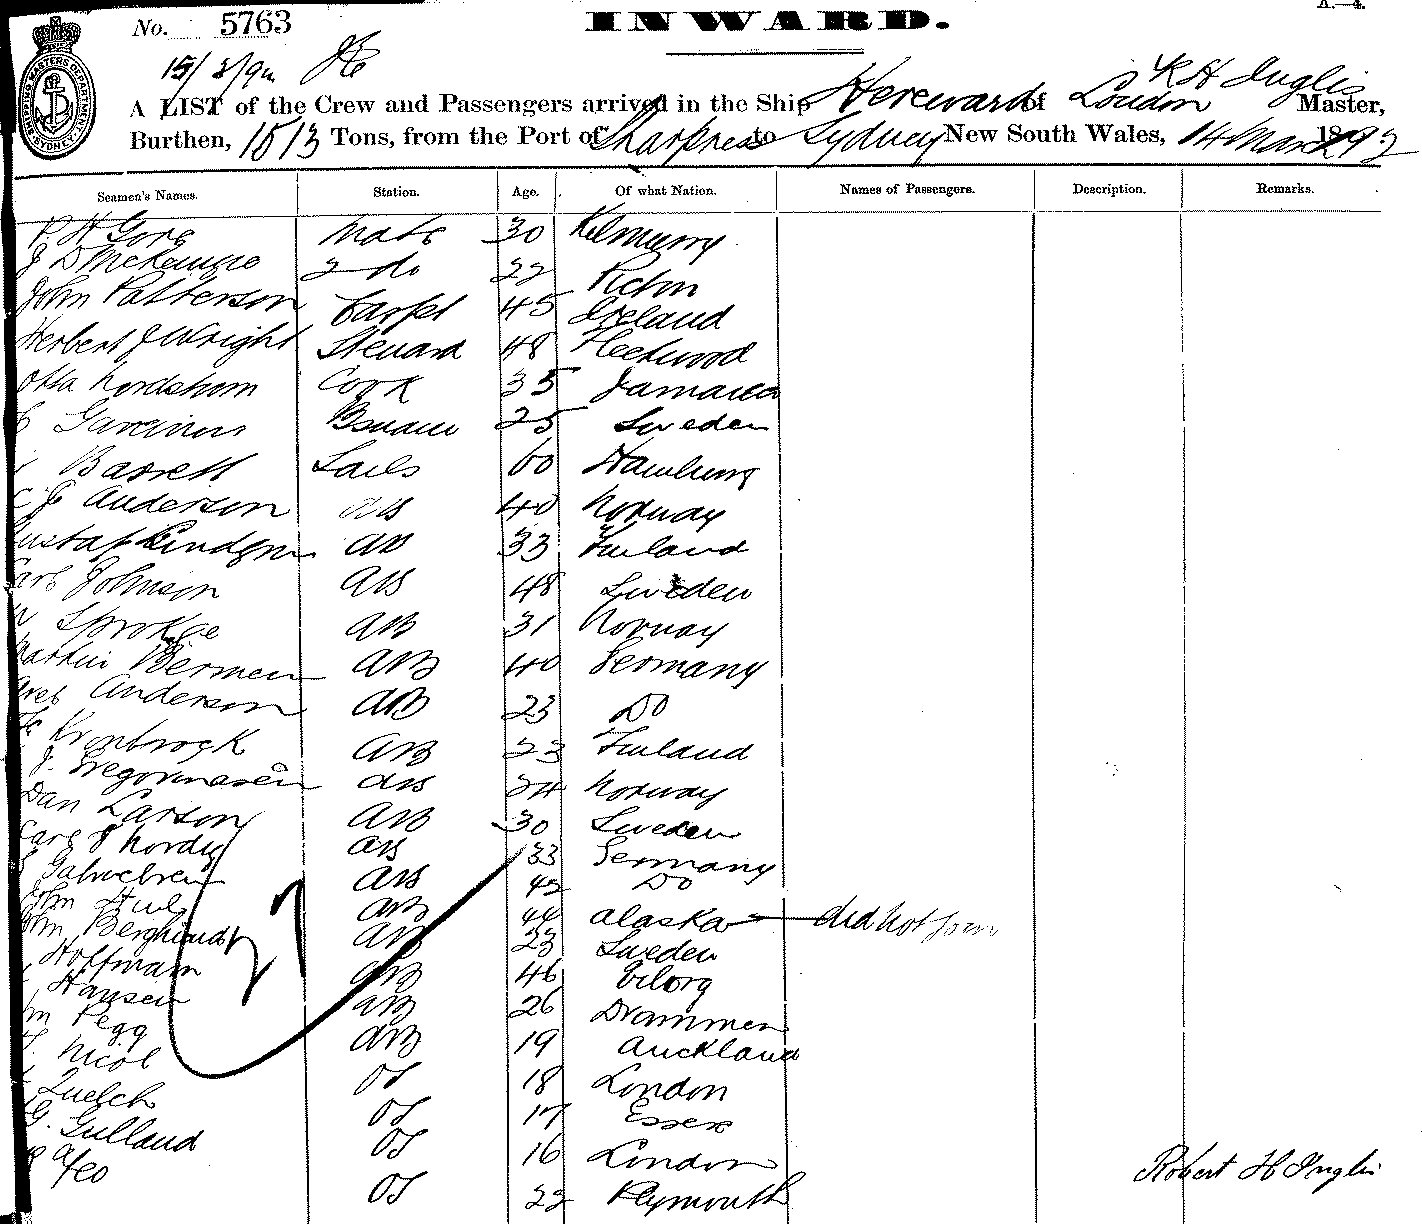 A.—4.
No. 5763 INWARD.
15/3/92
R H Inglis
A LIST of the Crew and Passengers arrived in the Ship Hereward of London Master,
Burthen, 1513 Tons, from the Port of Sharpness to Sydney New South Wales, 14 March 1892
SHIPPING MASTERS DEPARTMENT SYDNEY
Seamen's Names. Station. Age. Of what Nation. Names of Passengers. Description. Remarks.
P. H Gore Mate 30
J D McKenzie 2 do 22 Picton
John Patterson Carptr 45 Ireland
Herbert J Wright Steward 48 Fleetwood
Otta Nordstrom Cook 35 Jamaica
25 Sweden
Barrett Sails 60 Hamburg
C J Anderson AB 40 Norway
Gustaf Lindgren AB 33 Finland
Carl Johnson AB 48 Sweden
AB 31 Norway
Martin Bermen AB 40 Germany
Anderson AB 23 Do
Kronbrock AB 23 Finland
J. AB 24 Norway
Dan Larson AB 30 Sweden
Carl AB 33 Germany
AB 42 Do
John AB 44 Alaska did not join
John Berglund AB 23 Sweden
Hoffman AB 46
Hansen AB 26 Drammen
Pegg AB 19 Auckland
Nicol OS 18 London
Quelch OS 17 Essex
G. Gulland OS 16 London
OS 22 Plymouth
27
Robert H Inglis